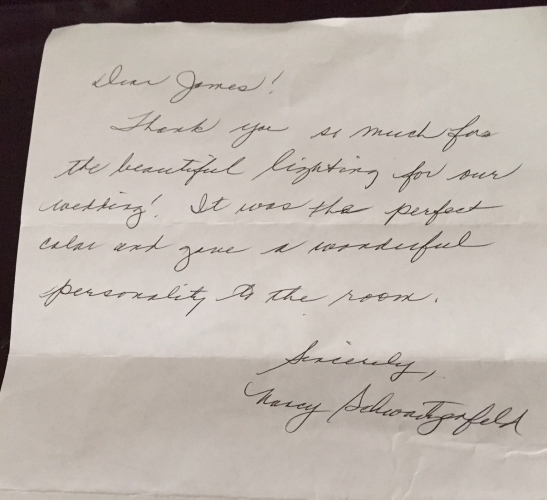 Dear James!
Thank you so much for
the beautiful lighting for our
wedding! It was the perfect
color and gave a wonderful
personality to the room.
Sincerely,
Nancy Schwartzenfeld